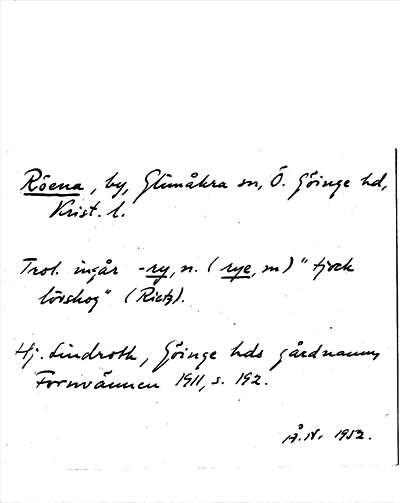 Röena, by, Glimåkra sn, Ö. Göinge hd,
Krist. l.
Trol. ingår -ry, n. (rye, m) "tjock
lövskog" (Rietz).
Hj. Lindroth, Göinge hds gårdnamn,
Fornvännen 1911, s. 192.
Å.N. 1952.